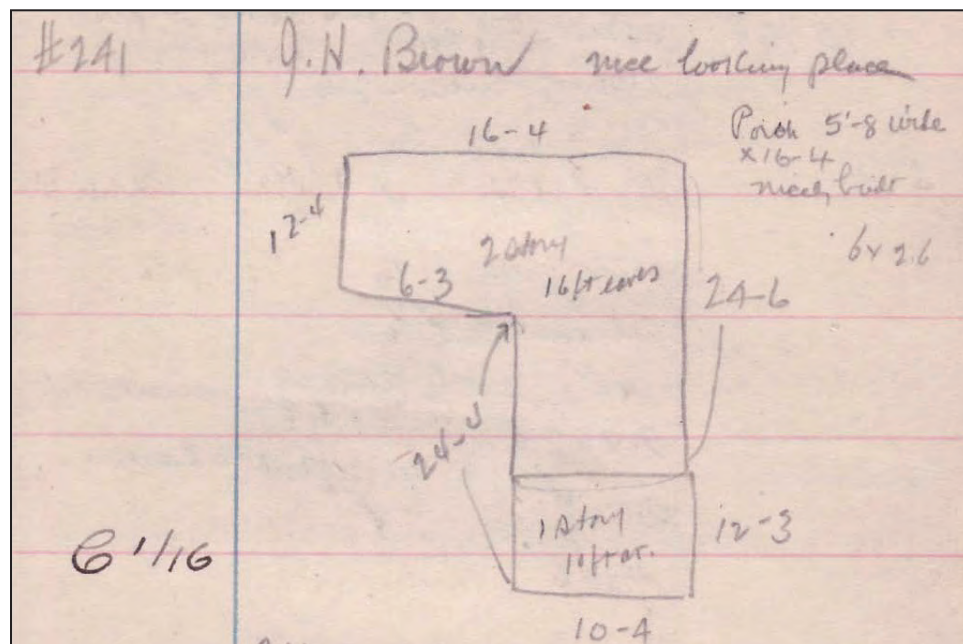 #241
J. H. Brown nice looking place
16-4
Porch 5'-8 wide
x 16-4
nicely built
12-4
2 story
16 ft eaves
6 x 2.6
6-3
24-6
1 story
10 ft
12-3
6 1/16
10-4